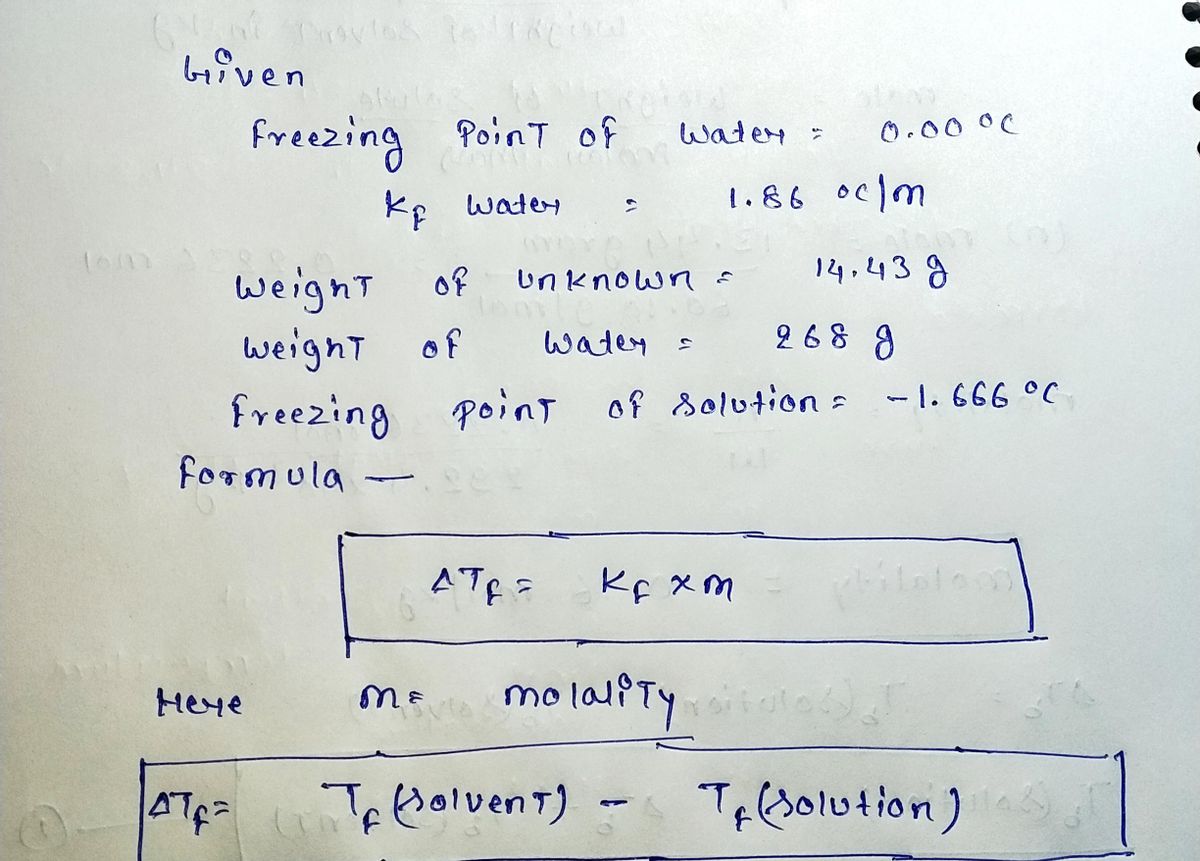 Given
Freezing Point of Water = 0.00 °C
Kf Water = 1.86 °C/m
Weight of Unknown = 14.43 g
Weight of Water = 268 g
Freezing point of solution = -1.666 °C
Formula —
ΔTf = Kf × m
Here m = molality
ΔTf = Tf (solvent) - Tf (solution)